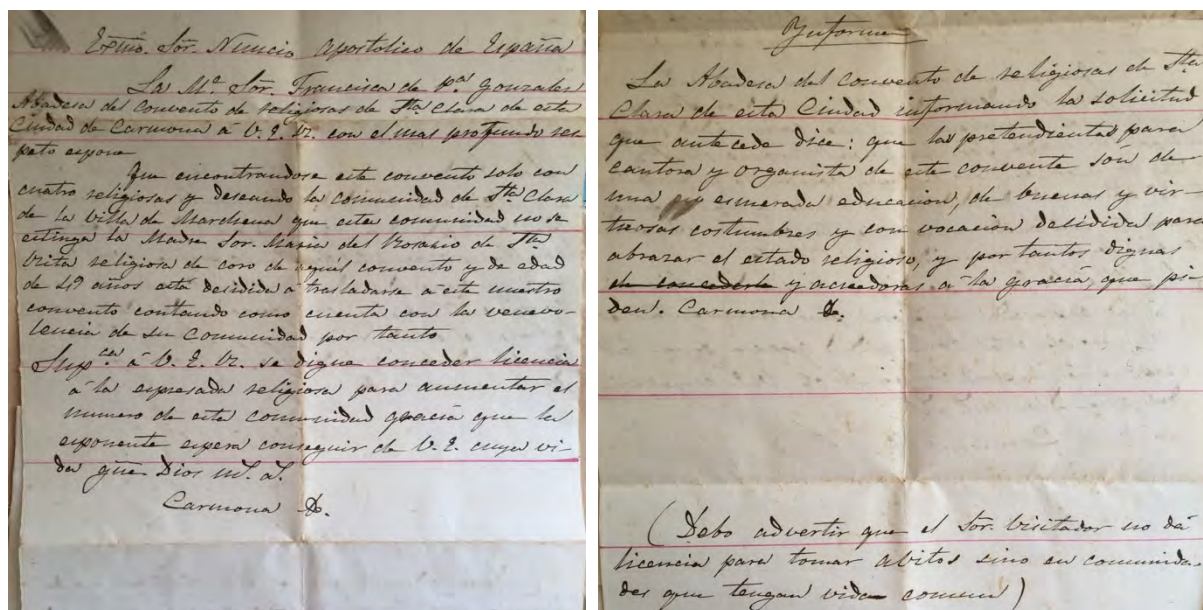 Exmo. Sor. Nuncio Apostolico de España
La M.ª Sor. Francisca de P.ª Gonzales
Abadesa del convento de religiosas de Sta. Clara de esta
Ciudad de Carmona á V. E. R. con el mas profundo res
peto espone
Que encontrandose este convento solo con
cuatro religiosas y deseando la comunidad de Sta. Clara
de la Villa de Marchena que esta comunidad no se
estinga la Madre Sor. Maria del Rosario de Sta.
Rita religiosa de coro de aquel convento y de edad
de 49 años está decidida á trasladarse a este nuestro
convento contando como cuenta con la venevo-
lencia de su Comunidad por tanto
Sup.ca á V. E. R. se digne conceder licencia
á la espresada religiosa para aumentar el
numero de esta comunidad gracia que la
esponente espera conseguir de V. E. cuya vi-
da gue. Dios m.s a.s
Carmona &.
Informe
La Abadesa del convento de religiosas de Sta.
Clara de esta Ciudad informando la solicitud
que antecede dice: que las pretendientas para
cantora y organista de este convento són de
una esmerada educacion, de buenas y vir-
tuosas costumbres y con vocación decidida para
abrazar el estado religioso, y por tantos dignas
de concederle y acreedoras á la gracia que pi-
den. Carmona &.
(Debo advertir que el Sor. Visitador no dá
licencia para tomar abitos sino en comunida-
des que tengan vida comun)